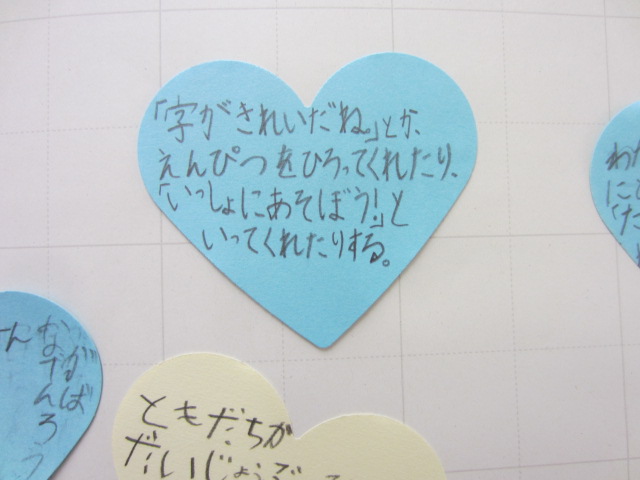 「字がきれいだね」とか、
えんぴつをひろってくれたり、
「いっしょにあそぼう!」と
いってくれたりする。
ともだちが
だいじょうぶ
わた
に
「た